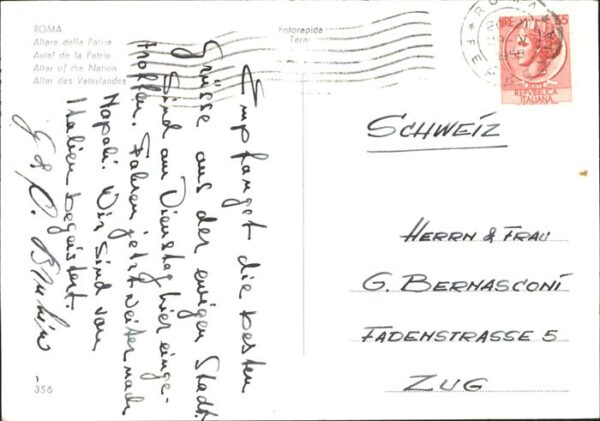 ROMA
Altare della Patria
Autel de la Patrie
Altar of the Nation
Altar des Vaterlandes
Fotorapida
Terni
ROMA
1958
LIRE 35
POSTE
REPVBBLICA
ITALIANA
Empfanget die besten
Grüsse aus der ewigen Stadt.
Sind am Dienstag hier einge-
troffen. Fahren jetzt weiter nach
Napoli. Wir sind von
Italien begeistert.
SCHWEIZ
HERRN & FRAU
G. BERNASCONI
FADENSTRASSE 5
ZUG
-356